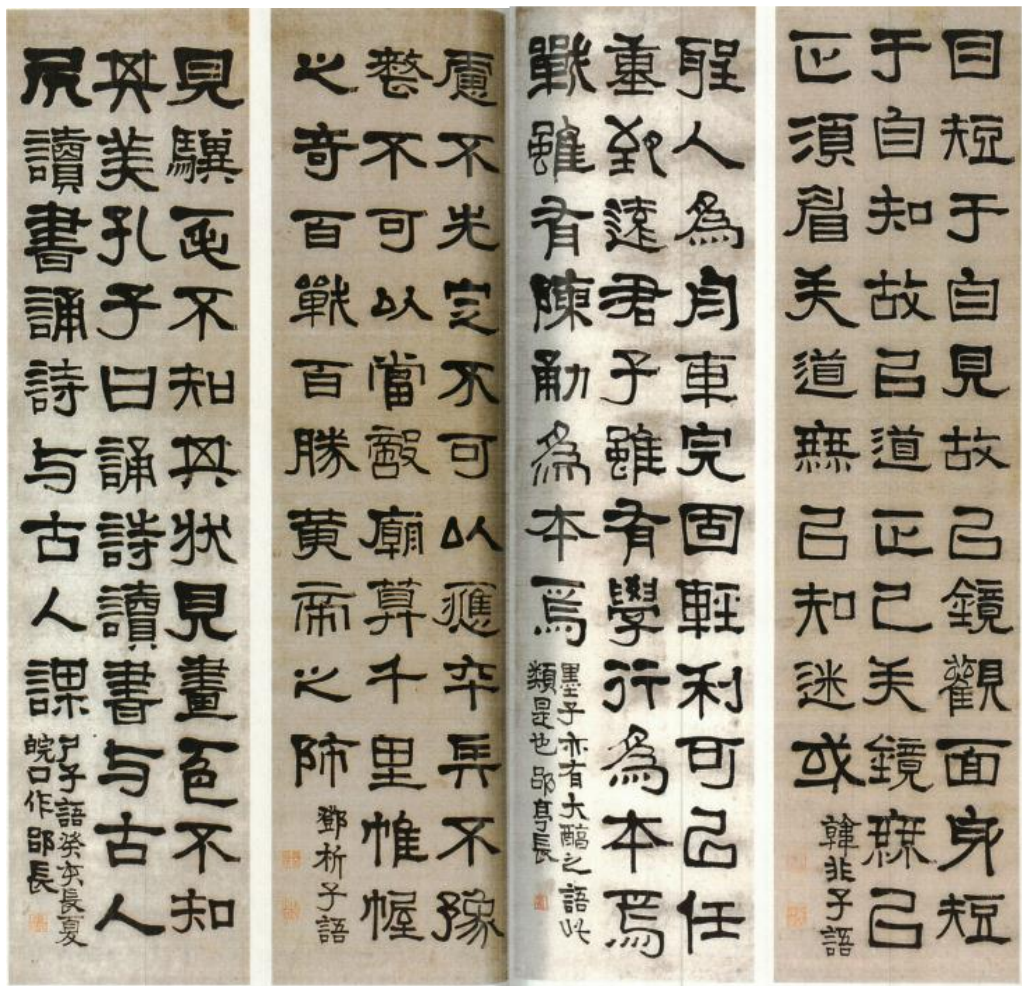 目短于自見故㠯鏡觀面身短
于自知故㠯道正己失鏡無㠯
正須眉失道無㠯知迷或
韓非子語
聖人為舟車完固輕利可㠯任
重致遠君子雖有學行為本焉
戰雖有陳勇為本焉
墨子亦有大醇之語此
類是也 郘亭長
慮不先定不可以應卒兵不豫
整不可以當敵廟算千里帷幄
之奇百戰百勝黃帝之師
鄧析子語
見驥一毛不知其狀見畫一色不知
其美孔子曰誦詩讀書与古人
居讀書誦詩与古人謀
尸子語癸亥長夏
皖口作郘長